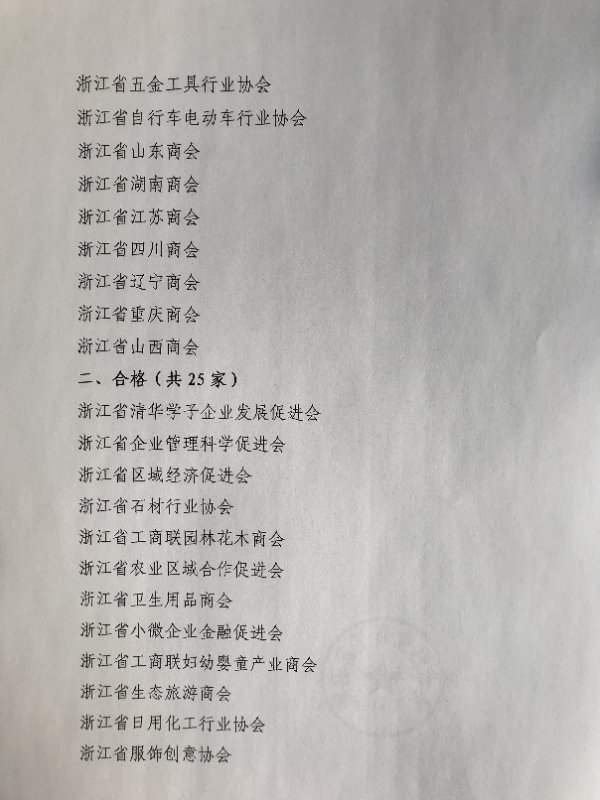 浙江省五金工具行业协会
浙江省自行车电动车行业协会
浙江省山东商会
浙江省湖南商会
浙江省江苏商会
浙江省四川商会
浙江省辽宁商会
浙江省重庆商会
浙江省山西商会
二、合格（共 25 家）
浙江省清华学子企业发展促进会
浙江省企业管理科学促进会
浙江省区域经济促进会
浙江省石材行业协会
浙江省工商联园林花木商会
浙江省农业区域合作促进会
浙江省卫生用品商会
浙江省小微企业金融促进会
浙江省工商联妇幼婴童产业商会
浙江省生态旅游商会
浙江省日用化工行业协会
浙江省服饰创意协会